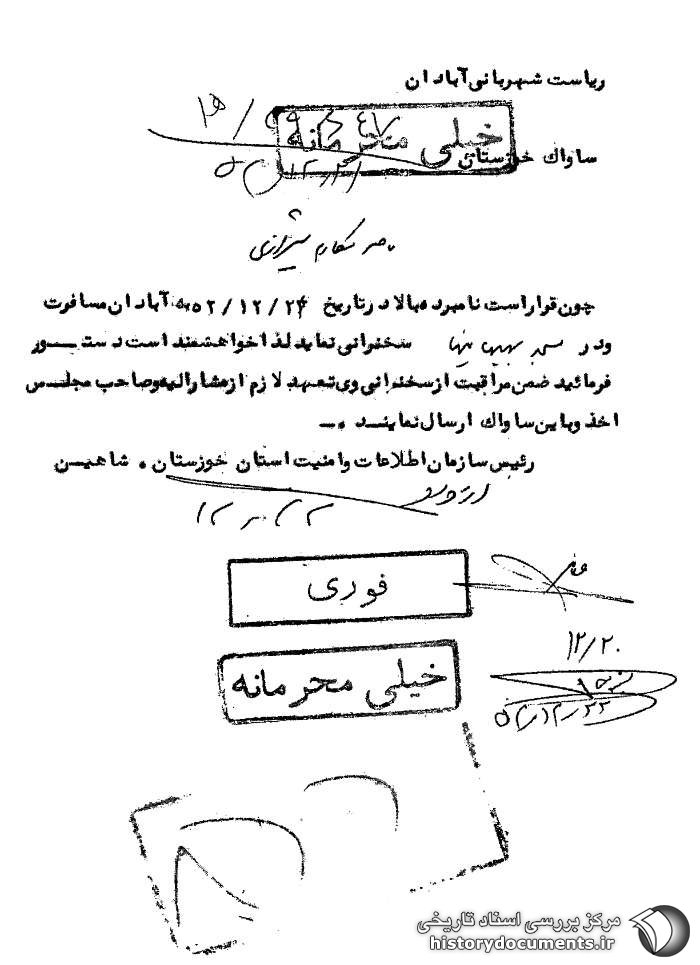 ریاست شهربانی آبادان
خیلی محرمانه
ساواک خوزستان
ناصر مکارم شیرازی
چون قرار است نامبرده بالا در تاریخ ۵۲/۱۲/۲۴ به آبادان مسافرت
و در مسجد بهبهانیها سخنرانی نماید لذا خواهشمند است دستور
فرمائید ضمن مراقبت از سخنرانی وی تعهد لازم از مشارالیه و صاحب مجلس
اخذ و باین ساواک ارسال نمایند .ـ
رئیس سازمان اطلاعات و امنیت استان خوزستان . شاهین
فوری
۱۲/۲۰
خیلی محرمانه
مرکز بررسی اسناد تاریخی
historydocuments.ir